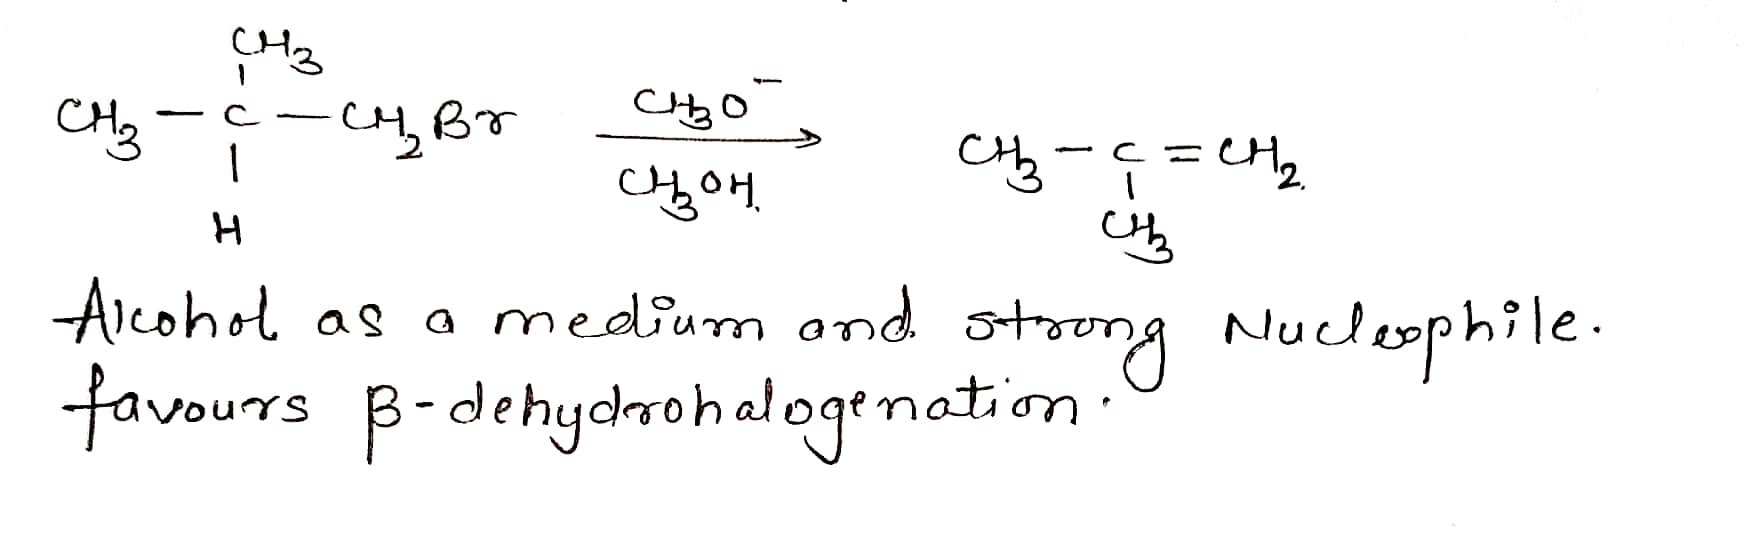 CH3
CH3 - C - CH2Br CH3O⁻
CH3OH.
H
CH3 - C = CH2.
CH3
Alcohol as a medium and strong Nucleophile.
favours β-dehydrohalogenation.